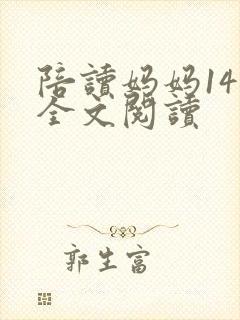 陪讀妈妈14
全文閱讀
郭生富